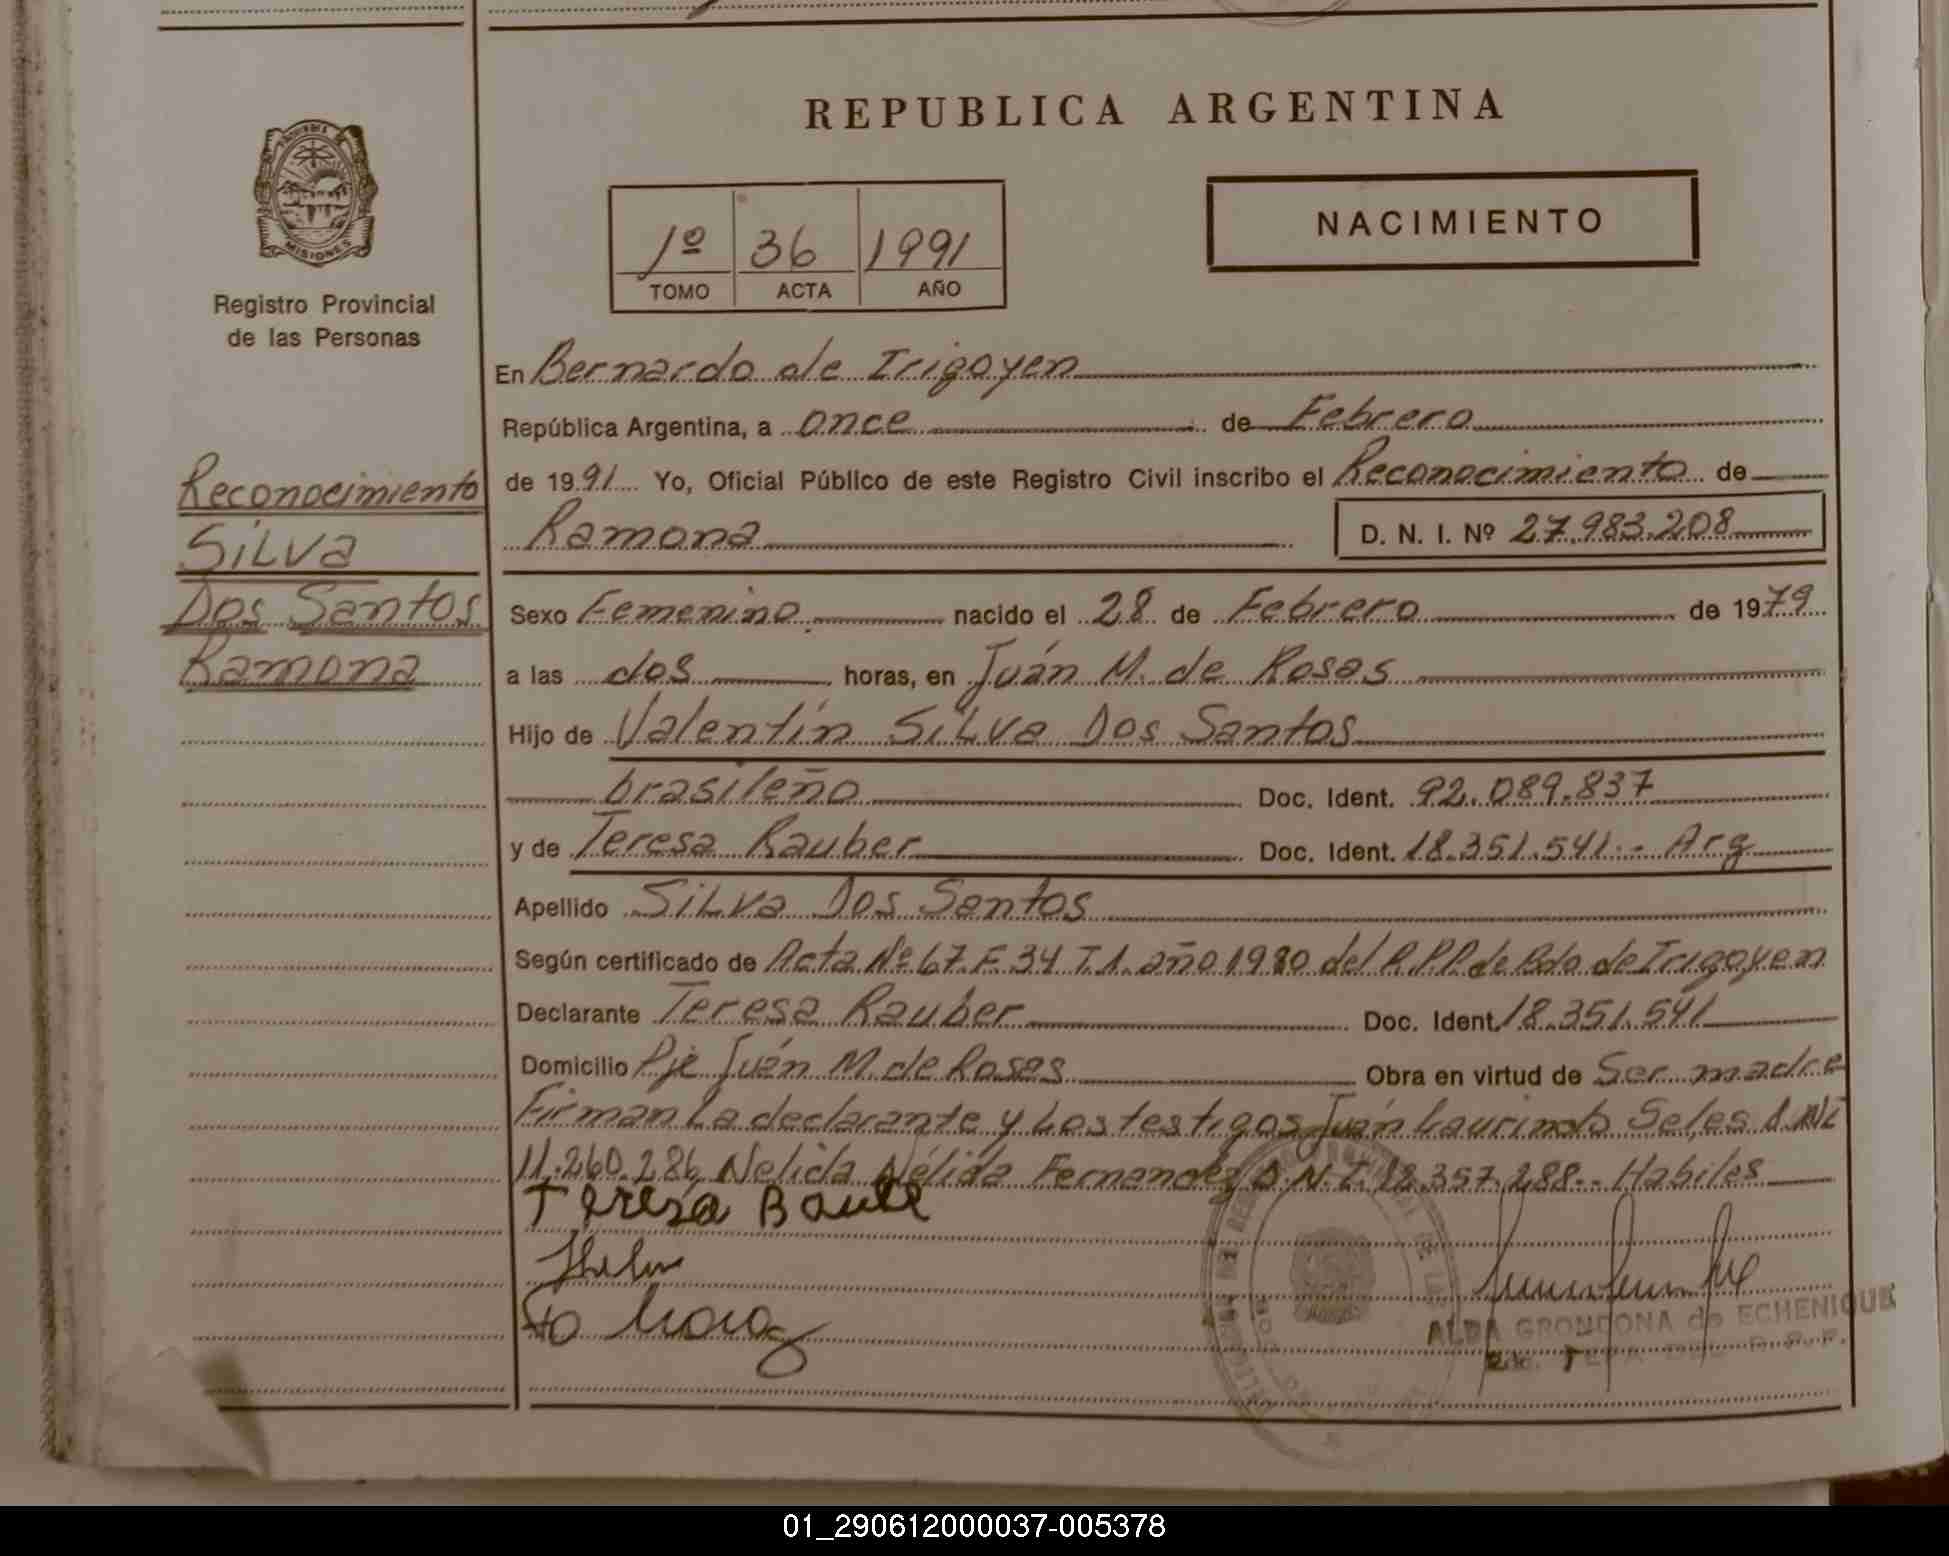 REPUBLICA ARGENTINA
MISIONES
Registro Provincial
de las Personas
1º 36 1991
TOMO ACTA AÑO
NACIMIENTO
Reconocimiento
SILVA
Dos Santos
Ramona
En Bernardo de Irigoyen
República Argentina, a once de Febrero
de 1991 Yo, Oficial Público de este Registro Civil inscribo el Reconocimiento de
Ramona D. N. I. Nº 27.983.208
Sexo Femenino nacido el 28 de Febrero de 1979
a las dos horas, en Juán M. de Rosas
Hijo de Valentín SILVA Dos Santos
brasileño Doc. Ident. 92.089.837
y de Teresa Rauber Doc. Ident. 18.351.541.- Arg
Apellido SILVA Dos Santos
Según certificado de Acta Nº 67 F. 34 T.1. año 1980 del R.P.P. de Bdo de Irigoyen
Declarante Teresa Rauber Doc. Ident. 18.351.541
Domicilio Pje Juán M. de Rosas Obra en virtud de Ser madre
Firman La declarante y Los testigos Juán Laurindo Seles D.N.I.
11.260.286, Nelida Nélida Fernandez D.N.I. 12.357.288.- Habiles
Teresa
ALBA GRONDONA de ECHENIQUE
01_290612000037-005378